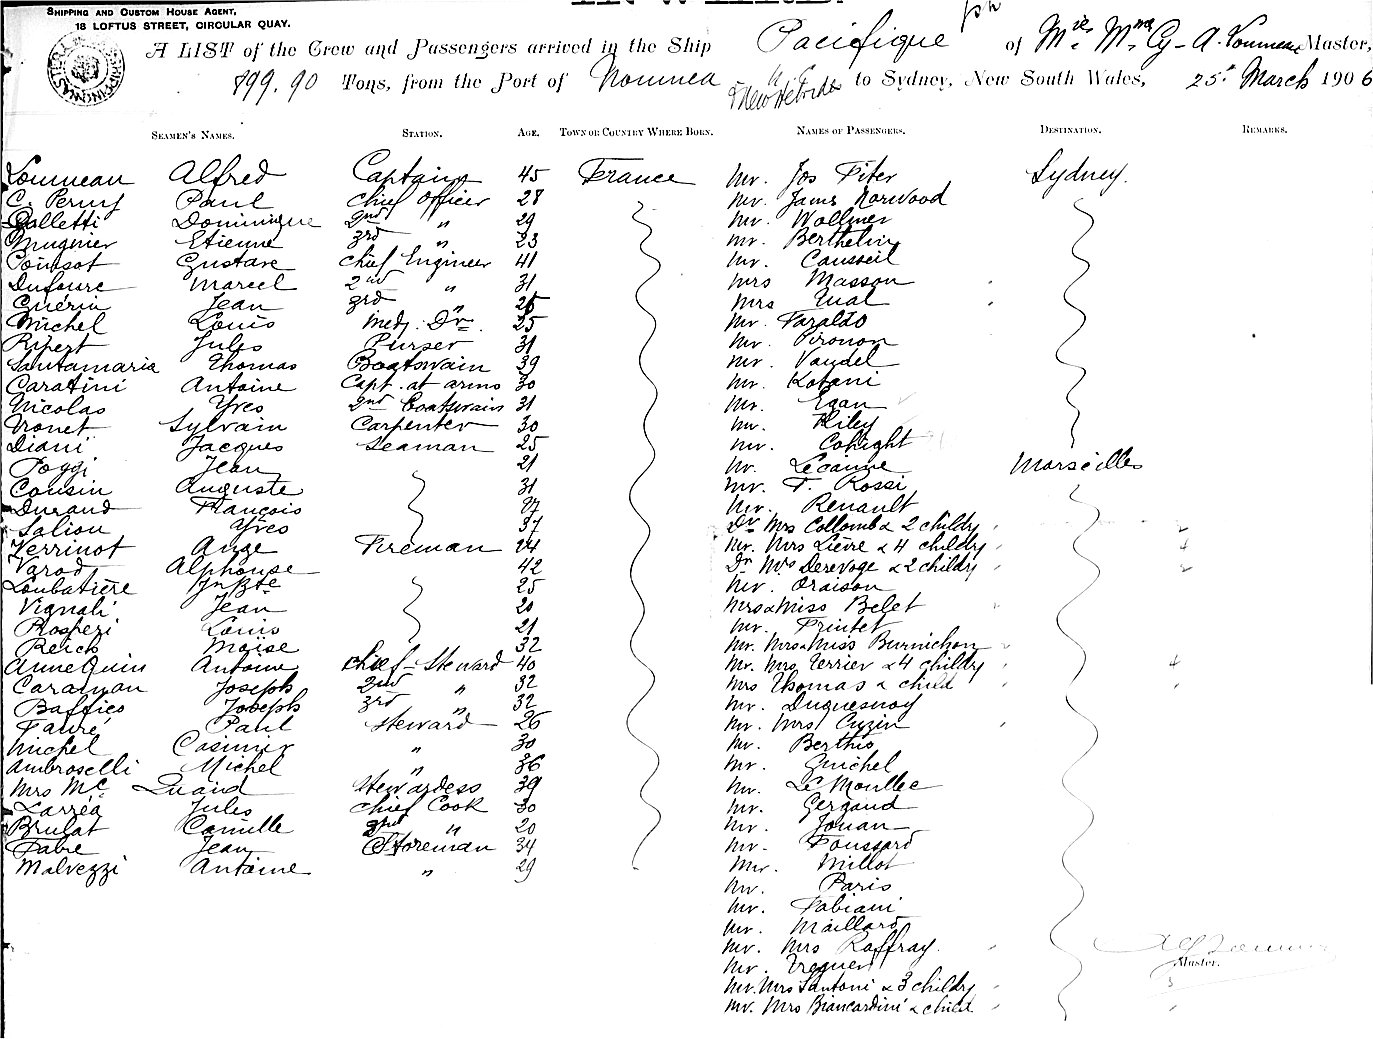 SHIPPING AND CUSTOM HOUSE AGENT,
18 LOFTUS STREET, CIRCULAR QUAY.
A LIST of the Crew and Passengers arrived in the Ship Pacifique of Master,
899.90 Tons, from the Port of Noumea & New Hebrides to Sydney, New South Wales, 25th March 1906
SEAMEN'S NAMES. STATION. AGE. TOWN OR COUNTRY WHERE BORN. NAMES OF PASSENGERS. DESTINATION. REMARKS.
Loumeau Alfred Captain 45 France Mr. Jos Fiter Sydney.
C. Perny Paul Chief Officer 28 Mr. James Norwood
Galletti Dominique 2nd " 29 Mr. Wollmer
Mugnier Etienne 3rd " 23 Mr. Berthelin
Coinsot Gustave Chief Engineer 41 Mr. Causseil
Dufaure Marcel 2nd " 31 Mrs Masson
Guérin Jean 3rd " 26 Mrs Ual
Michel Louis Med. Dr. 25 Mr. Faraldo
Ripert Jules Purser 31 Mr. Pironon
Santamaria Thomas Boatswain 39 Mr. Vaudel
Caratini Antoine Capt. at arms 30 Mr. Kotani
Nicolas Yves 2nd Boatswain 31 Mr. Egan
Vronet Sylvain Carpenter 30 Mr. Riley
Diani Jacques Seaman 25 Mr. Coknight
Poggi Jean 21 Mr. Lecanne Marseilles
Cousin Auguste 31 Mr. F. Rossi
Durand François 37 Mr. Renault
Saliou Yves 37 Dr Mrs Collomb & 2 childn
Verrinot Ange Fireman 24 Mr. Mrs Lièvre & 4 childn 4
Varod Alphonse 42 Dr Mrs Derevoge & 2 childn
Loubatière Jn Bte 25 Mr. Oraison
Vignali Jean 20 Mrs & Miss Belet
Prosperi Louis 21 Mr. Printet
Reich Moïse 32 Mr. Mrs & Miss Burnichon
Anne Quin Antoine Chief-Steward 40 Mr. Mrs Terrier & 4 childn 4
Caraman Joseph 2nd " 32 Mrs Thomas & child
Baffico Joseph 3rd " 32 Mr. Duquesnoy
Fauré Paul Steward 26 Mr. Mrs Cuzin
Michel Casimir " 30 Mr. Berthis
Ambroselli Michel " 36 Mr. Guichel
Mrs Mc Quaid Stewardess 39 Mr. Le Moullec
Larréa Jules Chief Cook 30 Mr. Gergaud
Brulat Camille 2nd " 20 Mr. Jouan
Fabre Jean Storeman 34 Mr. Foussard
Malvezzi Antoine " 29 Mr. Millot
Mr. Paris
Mr. Fabiani
Mr. Maillard
Mr. Mrs Raffray.
Mr. Treguer Master.
Mr. Mrs Santoni & 3 childn 3
Mr. Mrs Biancardini & child